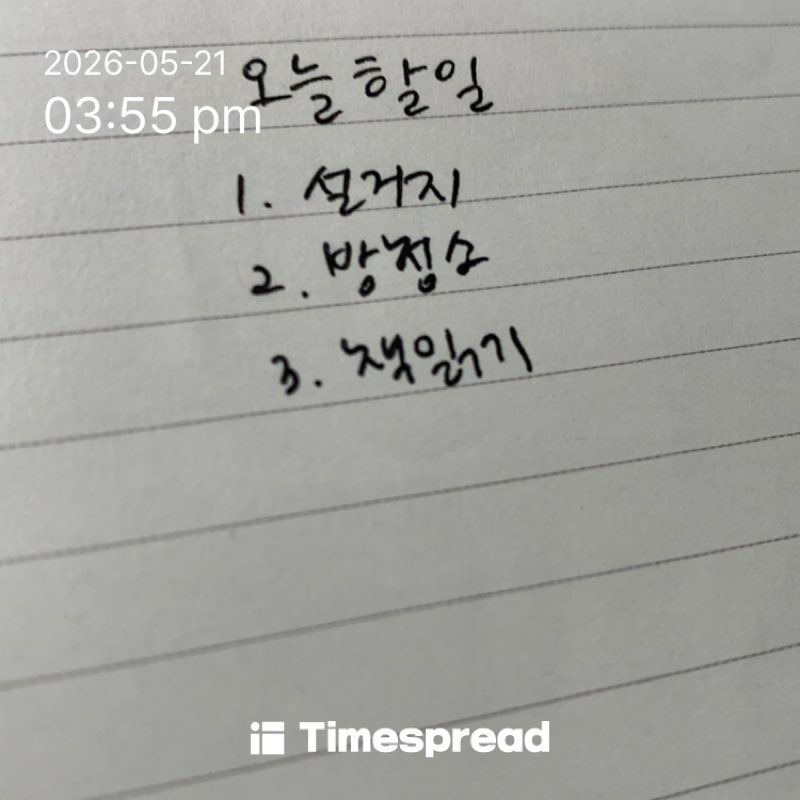 2026-05-21
03:55 pm
오늘 할일
1. 설거지
2. 방청소
3. 책읽기
Timespread